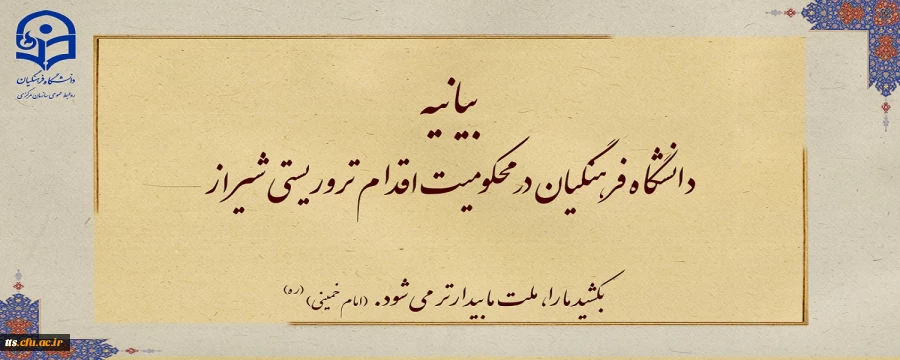 دانشگاه فرهنگیان
روابط عمومی سازمان مرکزی
بیانیه
دانشگاه فرهنگیان در محکومیت اقدام تروریستی شیراز
بکشید ما را، ملت ما بیدارتر می شود. (امام خمینی) (ره)
tts.cfu.ac.ir